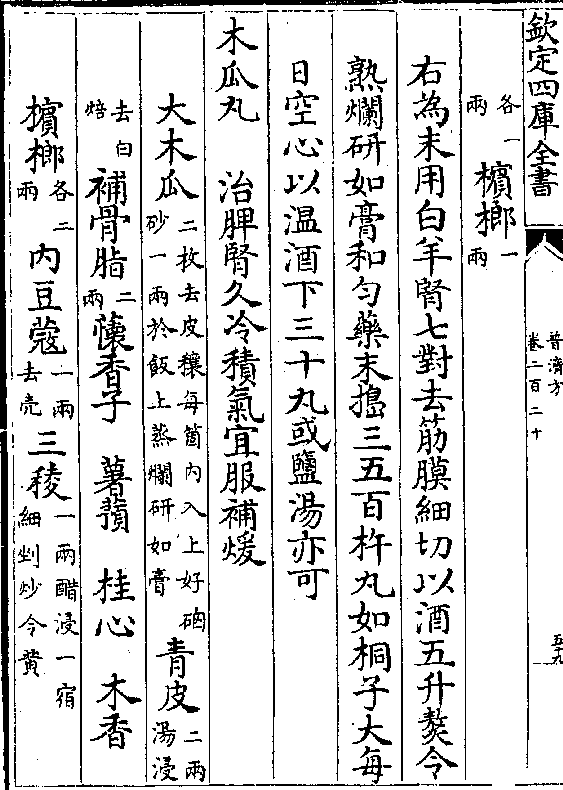 欽定四庫全書
普濟方
卷二百二十
五十九
各一兩 檳榔一兩
右為末用白羊腎七對去筋膜細切以酒五升熬令
熟爛研如膏和勻藥末搗三五百杵丸如桐子大每
日空心以温酒下三十丸或鹽湯亦可
木瓜丸 治脾腎久冷積氣宜服補煖
大木瓜二枚去皮穰每箇内入上好硇砂一兩於飯上蒸爛研如膏 青皮二兩湯浸
去白焙 補骨脂二兩 懷香子 薯蕷 桂心 木香
檳榔各二兩 内豆蔲一兩去壳 三稜一兩醋浸一宿細剉炒令黄